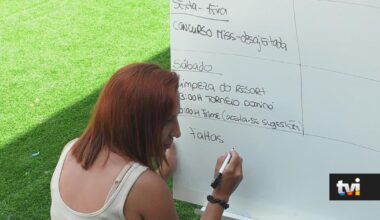 sexta-feira
CONCURSO MISS-desajeitada
sábado
Limpeza do RESORT
:00H TORNEIO DOMINÓ
:00H Filme (aceita-se sugestões)
Faltas
tvi